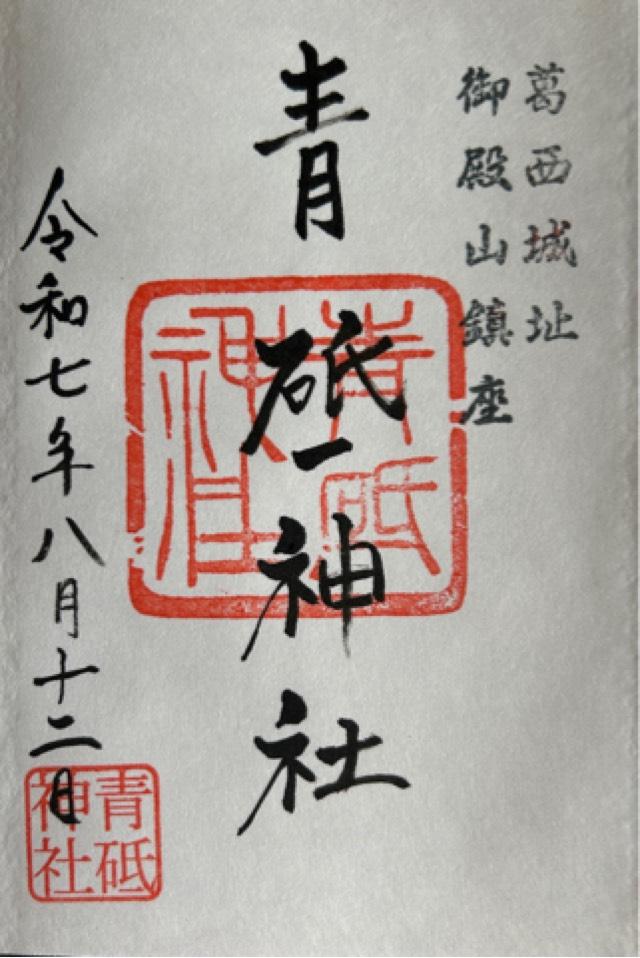 葛西城址
御殿山鎮座
青砥神社
青砥神社
令和七年八月十二日
青砥神社